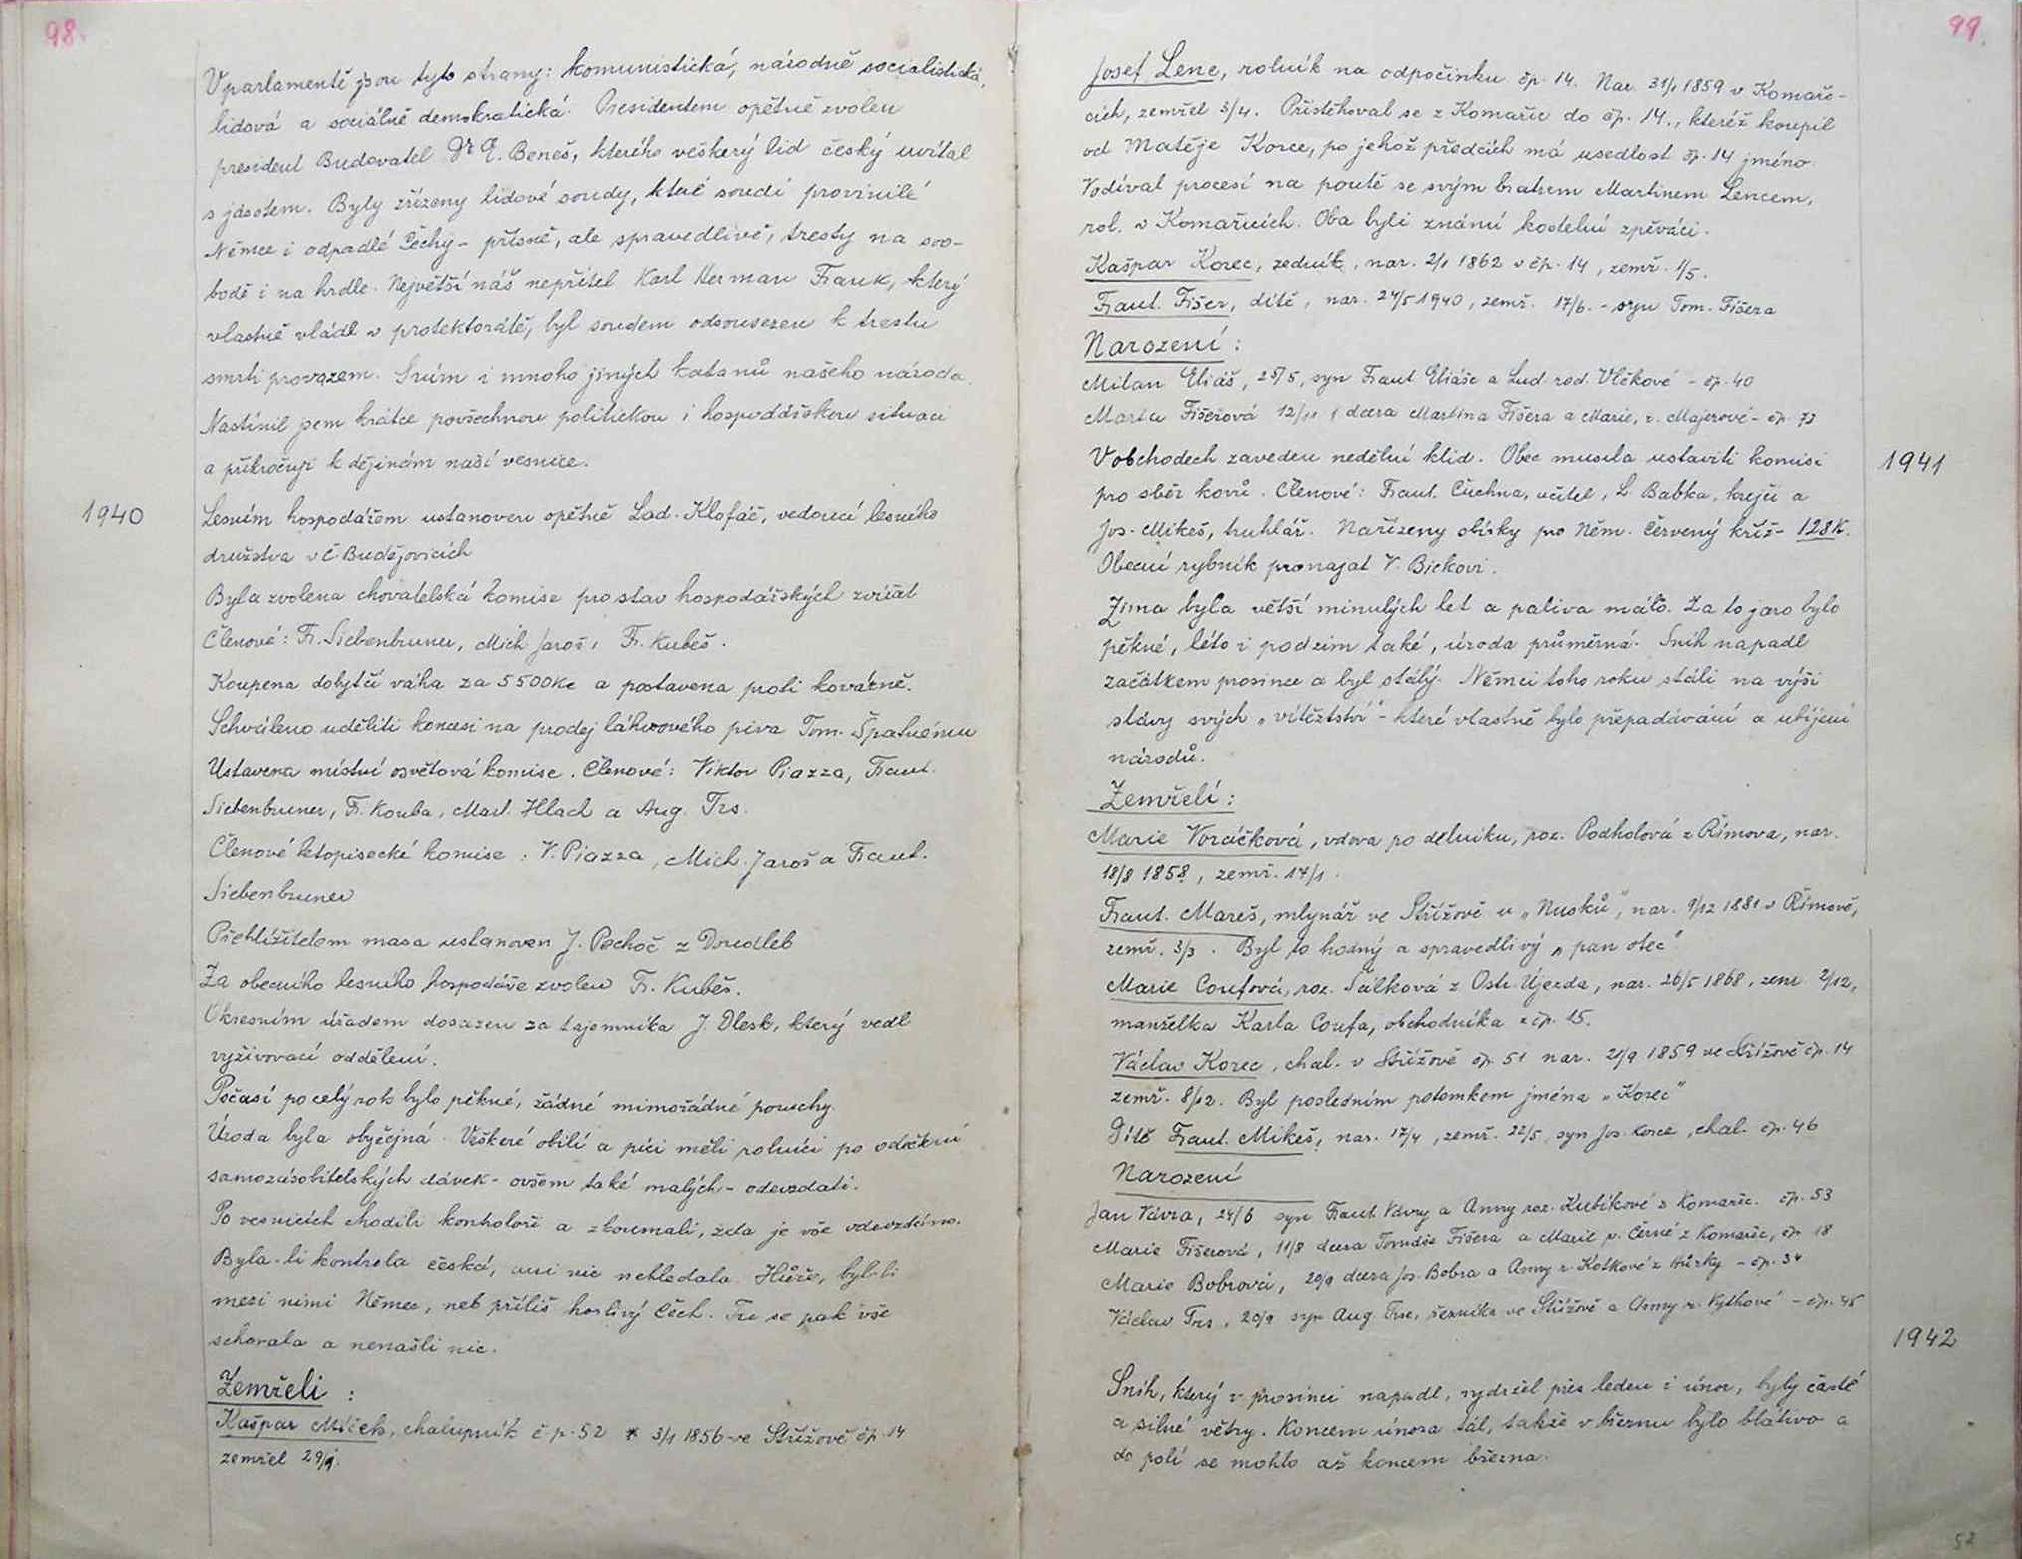 98.
V parlamentě jsou tyto strany: komunistická, národně socialistická,
lidová a sociálně demokratická. Presidentem opětně zvolen
president Budovatel Dr E. Beneš, kterého veškerý lid český uvítal
s jásotem. Byly zřízeny lidové soudy, které soudí provinilé
Němce i odpadlé Čechy - přísně, ale spravedlivě, tresty na svo-
bodě i na hrdle. Největší náš nepřítel Karl Herman Frank, který
vlastně vládl v protektorátě, byl soudem odsouzen k trestu
smrti provazem. S ním i mnoho jiných katanů našeho národa.
Nastínil jsem krátce povšechnou politickou i hospodářskou situaci
a přikročuji k dějinám naší vesnice.
1940
Lesním hospodářem ustanoven opětně Lad. Klofáč, vedoucí lesního
družstva v Č. Budějovicích
Byla zvolena chovatelská komise pro stav hospodářských zvířat
Členové: Fr. Siebenbruner, Mich Jaroš, Fr. Kubeš.
Koupena dobytčí váha za 5500Kč a postavena proti kovárně.
Schváleno uděliti koncesi na prodej láhvového piva Tom. Špatnému
Ustavena místní osvětová komise. Členové: Viktor Piazza, Frant.
Siebenbruner, Fr. Kouba, Mat. Hlach a Aug. Trs.
Členové letopisecké komise: V. Piazza, Mich. Jaroš a Frant.
Siebenbruner
Přehlížitelem masa ustanoven J. Pechoč z Doudleb
Za obecního lesního hospodáře zvolen Fr. Kubeš.
Okresním úřadem dosazen za tajemníka J. Dlesk, který vedl
vyživovací oddělení.
Počasí po celý rok bylo pěkné, žádné mimořádné poruchy.
Úroda byla obyčejná. Veškeré obilí a píci měli rolníci po odečtení
samozásobitelských dávek - ovšem také malých - odevzdati.
Po vesnicích chodili kontroloři a zkoumali, zda je vše odevzdáno.
Byla-li kontrola česká, ani nic nehledala. Hůře, byl-li
mezi nimi Němec, neb příliš horlivý Čech. Tu se pak vše
schovalo a nenašli nic.
Zemřeli :
Kašpar Míček, chalupník č.p. 52 * 3/1 1856 ve Střížově čp. 14
zemřel 29/1.
99.
Josef Lenc, rolník na odpočinku čp. 14. Nar. 31/1 1859 v Komaři-
cích, zemřel 3/4. Přistěhoval se z Komařic do čp. 14., kteréž koupil
od Matěje Korce, po jehož předcích má usedlost čp. 14 jméno.
Vodíval procesí na poutě se svým bratrem Martinem Lencem,
rol. v Komařicích. Oba byli známí kostelní zpěváci.
Kašpar Korec, zedník, nar. 2/1 1862 v čp. 14, zemř. 1/5.
Frant. Fišer, dítě, nar. 24/5 1940, zemř. 17/6. - syn Tom. Fišera
Narození :
Milan Eliáš, 25/5, syn Frant Eliáše a Lud. rod. Vlčkové - čp. 40
Marta Fišerová 12/11, dcera Martina Fišera a Marie, r. Majerové - čp. 73
1941
V obchodech zaveden nedělní klid. Obec musela ustaviti komisi
pro sběr kovů. Členové: Frant. Čuchna, učitel, L. Babka, krejčí a
Jos. Mikeš, truhlář. Nařízeny sbírky pro Něm. Červený kříž - 128K.
Obecní rybník pronajat V. Bickovi.
Zima byla větší minulých let a paliva málo. Za to jaro bylo
pěkné, léto i podzim také, úroda průměrná. Sníh napadl
začátkem prosince a byl stálý. Němci toho roku stáli na výši
slávy svých „vítězství" - které vlastně bylo přepadávání a ubíjení
národů.
Zemřelí :
Marie Voráčková, vdova po dělníku, roz. Podholová z Římova, nar.
18/8 1858, zemř. 14/1.
Frant. Mareš, mlynář ve Střížově u „Nusků", nar. 9/12 1881 v Římově,
zemř. 3/3. Byl to hodný a spravedlivý „pan otec".
Marie Coufová, roz. Šálková z Ostr. Újezda, nar. 26/5 1868, zemř 2/12,
manželka Karla Coufa, obchodníka z čp. 15.
Václav Korec, chal. v Střížově čp. 51 nar. 21/9 1859 ve Střížově čp. 14
zemř. 8/12. Byl posledním potomkem jména „Korec"
Dítě Frant. Mikeš, nar. 17/4, zemř. 22/5, syn Jos. Korce, chal. čp. 46
Narození
Jan Vávra, 24/6 syn Frant. Vávry a Anny roz. Kubíkové z Komařic. čp. 53
Marie Fišerová, 11/8 dcera Tomáše Fišera a Marie r. Černé z Komařic, čp 18
Marie Bobrová, 20/9 dcera Jos. Bobra a Anny r. Kotkové z Hůrky - čp. 34
Václav Trs, 20/9 syn Aug. Trse, řezníka ve Střížově a Anny r. Vythové - čp. 45
1942
Sníh, který v prosinci napadl, vydržel přes leden i únor, byly časté
a silné větry. Koncem února tál, takže v březnu bylo blátivo a
do polí se mohlo až koncem března.
52